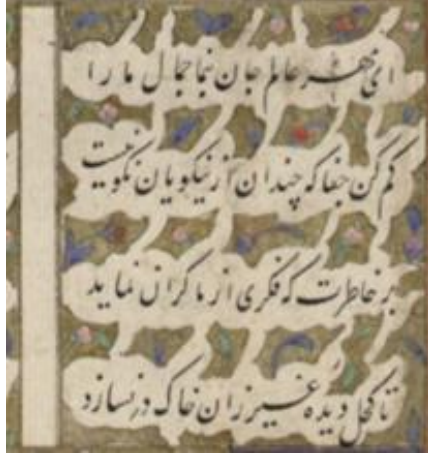 ای مهر عالم جان بنما جمال ما را
کم کن جفا که چندان از نیکویان نکو نیست
بر خاطرت که فکری از ما گران نماید
تا کحل دیده غیر زان خاک در نسازد